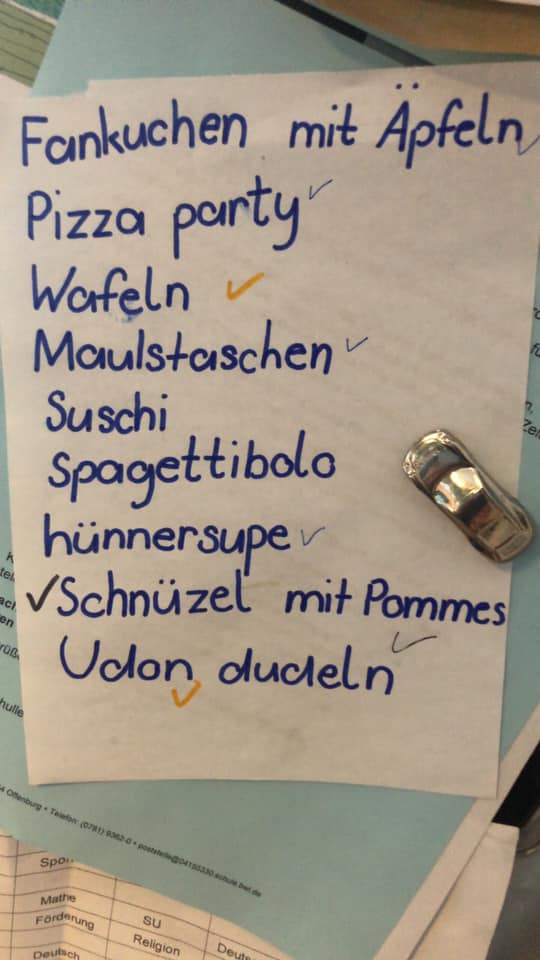 Fankuchen mit Äpfeln
Pizza party
Wafeln
Maulstaschen
Suschi
spagettibolo
hünnersupe
Schnüzel mit Pommes
Udon dudeln
4 Offenburg • Telefon: (0781) 9362-0 • poststelle@04155330.schule.bwl.de
Mathe
Förderung
SU
Religion
Deutsch